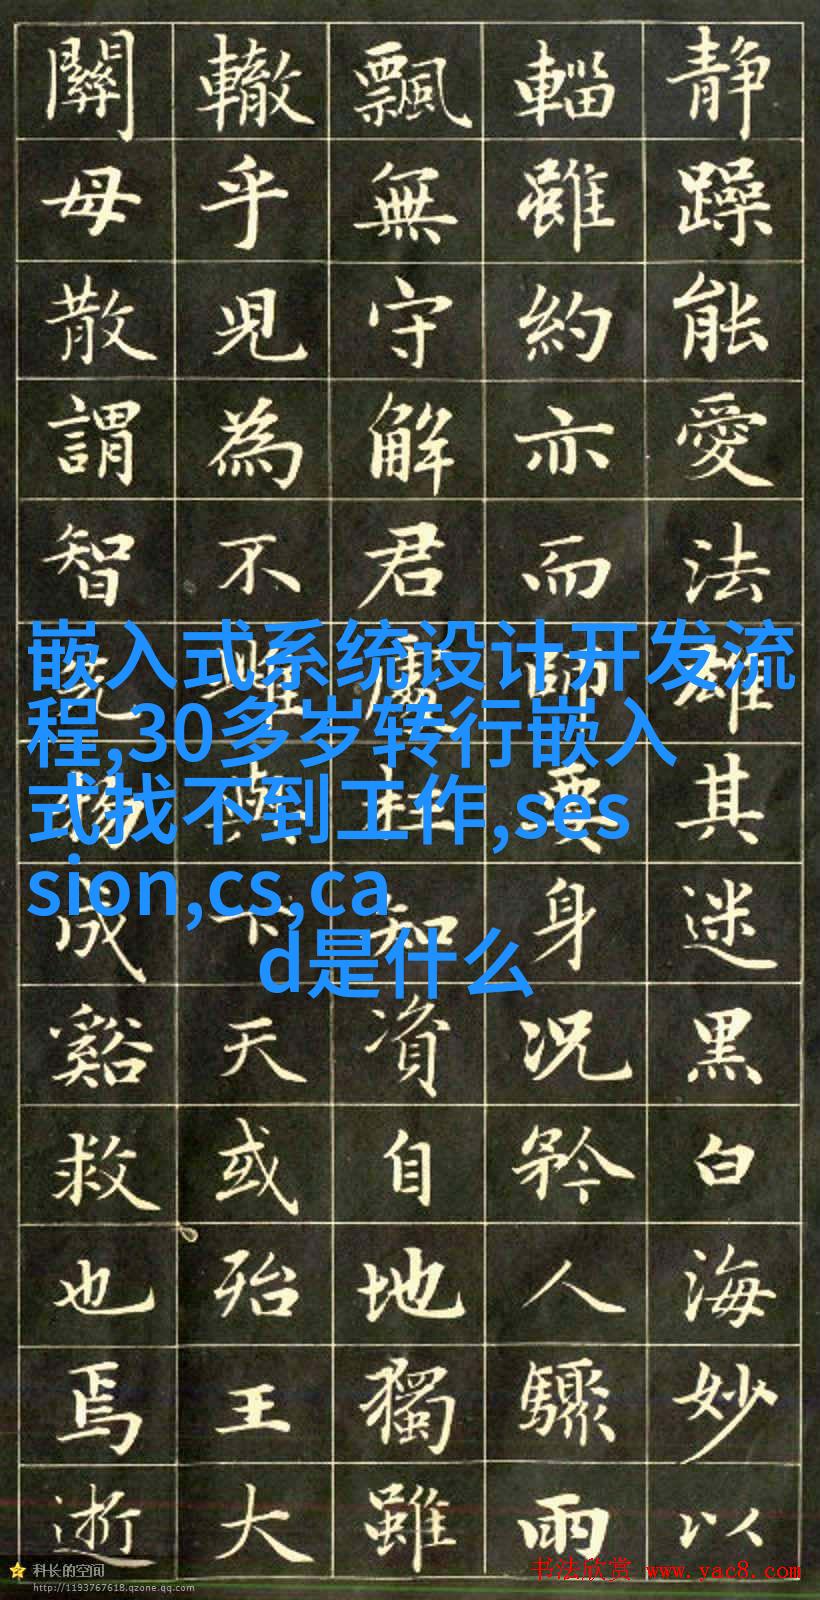 静躁能愛法雄其迷黑白海妙以
輜雖約亦而師要身況矜人驟雨
飄無守解君知資自地獨雖
轍乎為不與天或殆王大
關毋散謂智物成谿救也焉逝
嵌入式系统设计开发流
程,30多岁转行嵌入
式找不到工作,ses
sion,cs,ca
d是什么
科长的空间
http://1193767618.qzone.qq.com
书法欣赏 www.yac8.com